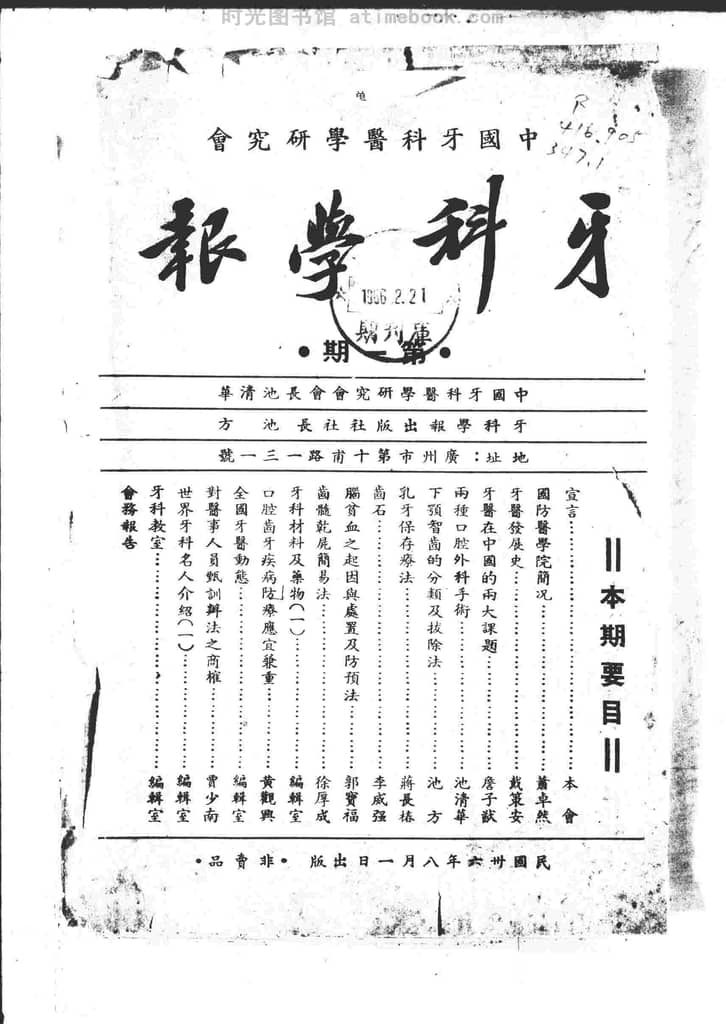 时光图书馆 atimebook.com
R
416.905
347.1
中國牙科醫學研究會
牙科學報
1986.2.21
期刊庫
•第一期•
中國牙科醫學研究會會長池清華
牙科學報出版社社長 池方
地址：廣州市第十甫路一三一號
＝本期要目＝
宣言……本會
國防醫學院簡况……蕭卓然
牙醫發展史……戴策安
牙醫在中國的兩大課題……詹子猷
兩種口腔外科手術……池清華
下顎智齒的分類及拔除法……池方
乳牙保存療法……蔣長椿
齒石……李威强
腦貧血之起因與處置及防預法……郭寶福
齒髓乾屍簡易法……徐厚成
牙科材料及藥物(一)……編輯室
口腔齒牙疾病防療應宜兼重……黄觀興
全國牙醫動態……編輯室
對醫事人員甄訓辦法之商榷……賈少南
世界牙科名人介紹(一)……編輯室
牙科教室……編輯室
會務報告
民國卅六年八月一日出版 •非賣品•